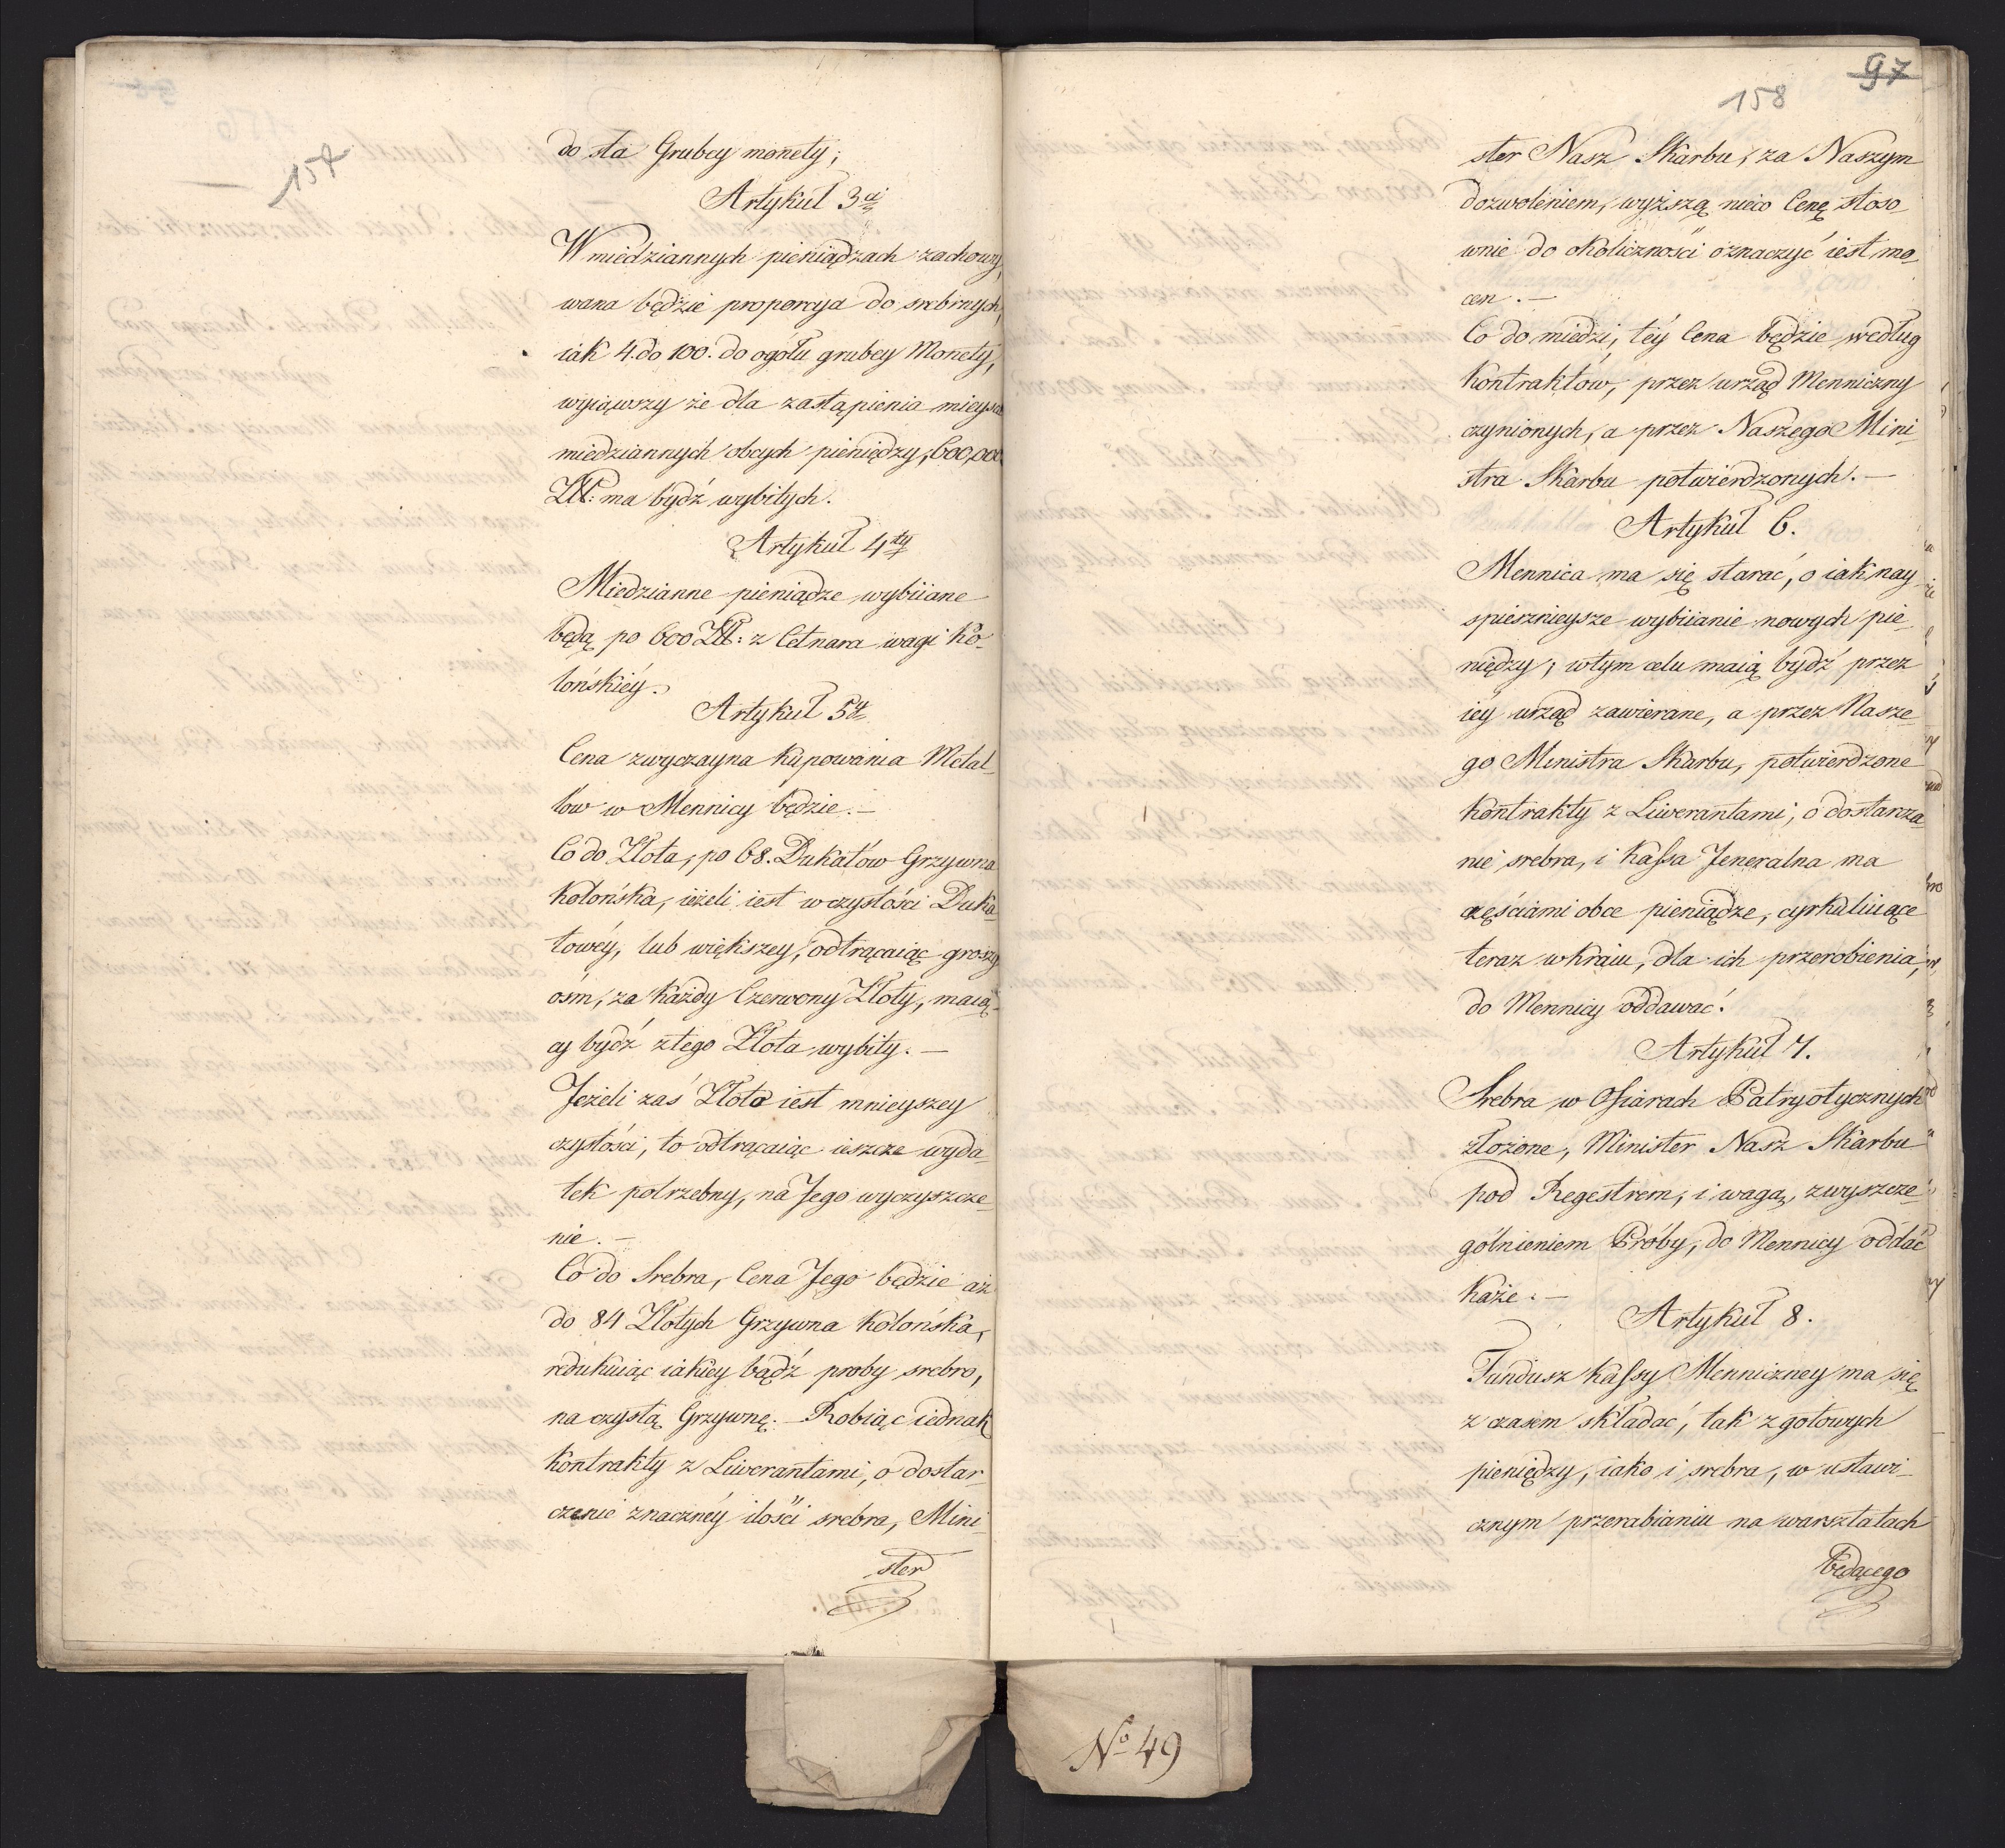 157
do sta Grubey monety;
Artykuł 3ci
W miedziannych pieniądzach zachowy
wana będzie proporcya do srebrnych,
iak 4. do 100. do ogółu grubey Monety,
wyiąwszy że dla zastąpienia mieysca
miedziannych obcych pieniędzy, 600,000
Złł: ma bydź wybitych.
Artykuł 4ty
Miedzianne pieniądze wybiiane
będą po 600 Złł: z Cetnara wagi Ko-
lońskiéy.
Artykuł 5ty
Cena zwyczayna Kupowania Metal-
lów w Mennicy będzie. —
Co do Złota, po 68. Dukatów Grzywna
Kolońska, ieżeli iest w czystości Duka
towéy, lub większey, odtrącaiąc groszy
ośm, za Każdy Czerwony Złoty, maią-
cy bydź z tego Złota wybity. —
Jeżeli zaś Złoto iest mnieyszey
czystości, to odtrącaiąc ieszcze wyda-
tek potrzebny, na Jego wyczyszcze-
nie. —
Co do Srebra, Cena Jego będzie aż
do 84 Złotych Grzywna Kolońska,
redukuiąc iakiey bądź proby srebro,
na czystą Grzywnę. — Robiąc iednak
Kontrakty z Liwerantami, o dostar-
czenie znacznéy ilości srebra, Mini
ster
97
158
ster Nasz Skarbu, za Naszym
dozwoleniem, wyższą nieco Cenę stoso-
wnie do okoliczności oznaczyć iest mo-
cen. —
Co do miedzi, téy Cena będzie według
Kontraktów, przez urząd Menniczny
czynionych, a przez Naszego Mini
stra Skarbu potwierdzonych. —
Artykuł 6.
Mennica ma się starać, o iak nay
spiesznieysze wybiianie nowych pie-
niędzy; w tym celu maią bydź przez
iey urząd zawierane, a przez Nasze-
go Ministra Skarbu, potwierdzone
Kontrakty z Liwerantami, o dostarza
nie srebra, i Kassa Jeneralna ma
częściami obce pieniądze, cyrkuluiące
teraz w Kraiu, dla ich przerobienia,
do Mennicy oddawać.
Artykuł 7.
Srebra w Ofiarach Patryotycznych
złożone, Minister Nasz Skarbu
pod Regestrem, i wagą, z wyszcze-
gólnieniem Próby, do Mennicy oddać
Każe. —
Artykuł 8.
Fundusz Kassy Menniczney ma się
z czasem składać, tak z gotowych
pieniędzy, iako i srebra, w ustawi-
cznym przerabianiu na warsztatach
będącego
No 49